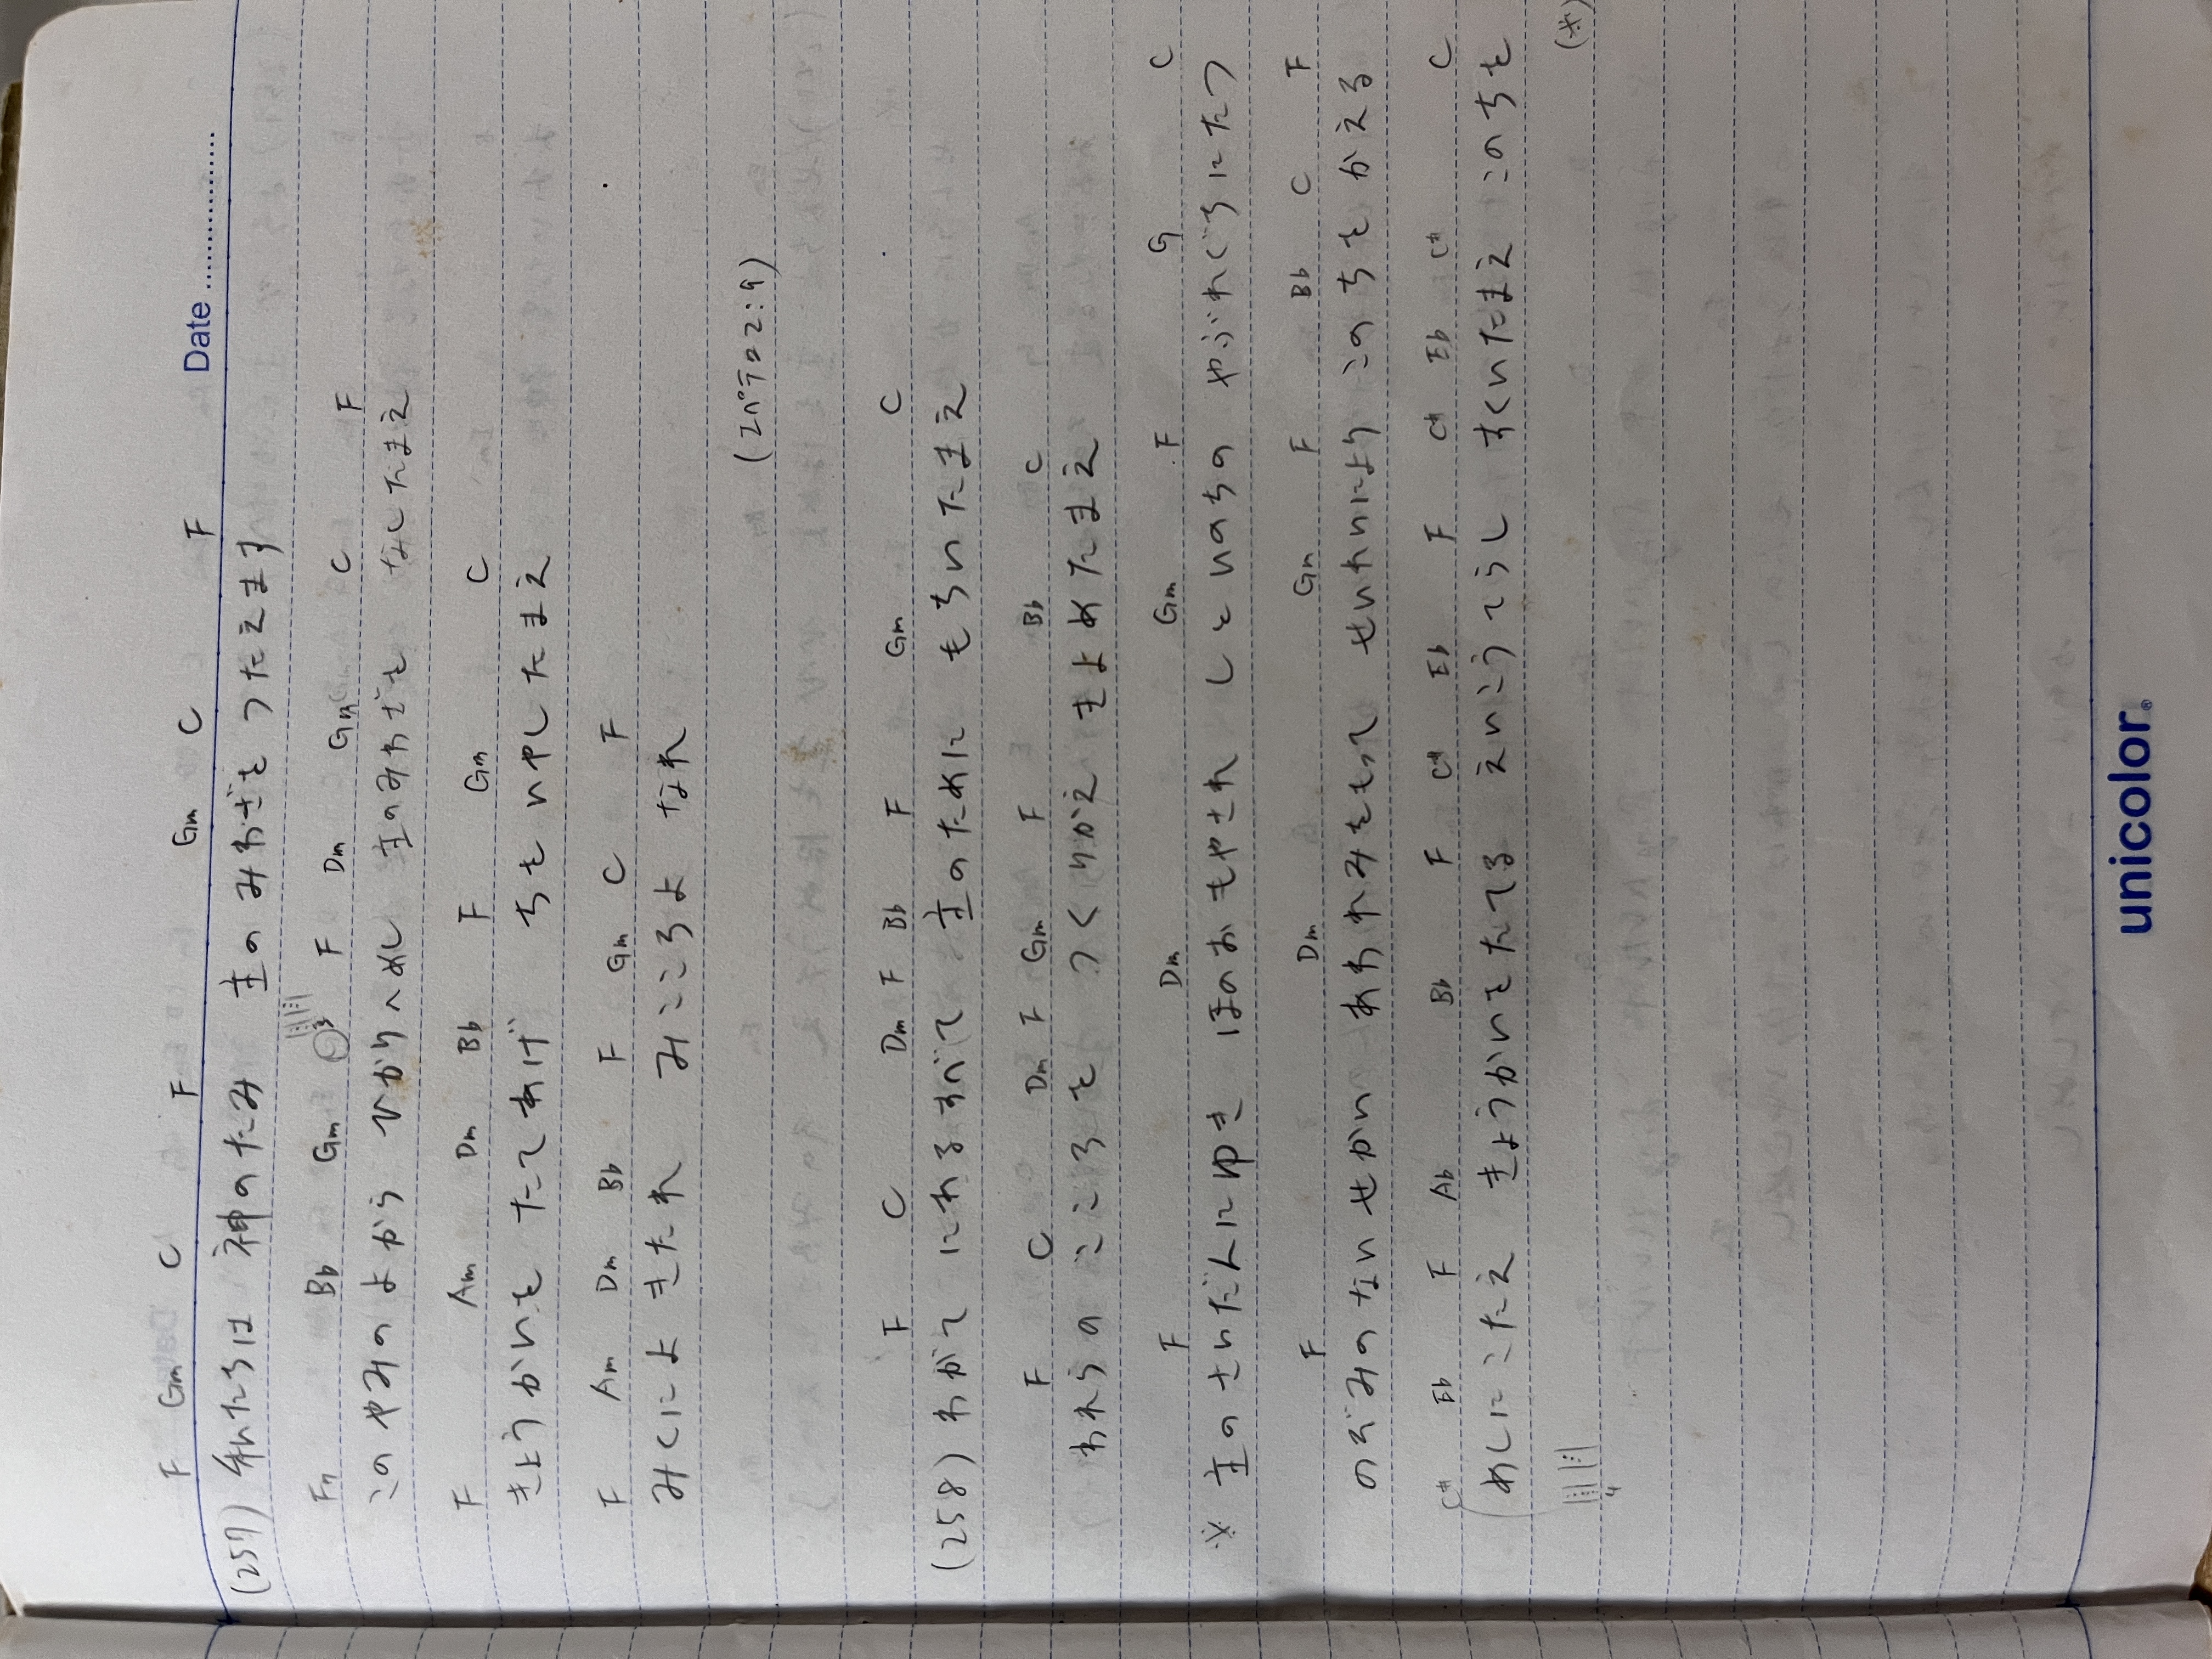 Date
F Gm C F Gm C F
(257) 私たちは 神のたみ 主のみわざを つたえます
Bb Gm F Dm Gm C F
このやみのよから ひかりへめし 主のみわざを なしたまえ
F Am Dm Bb F Gm C
きょうかいを たてあげ ちを いやしたまえ
F Am Dm Bb F Gm C F
みくによ きたれ みこころよ なれ
(Iペテロ2:9)
F C Dm F Bb F Gm C
(258) わがてにあるすべて 主のために もちいたまえ
F C Dm F Gm F Bb C
われらのこころを つくりかえ きよめたまえ
F Dm Gm F G C
※ 主のさいだんにゆき ほのおもやされ しといのちの やぶれぐちにたつ
F Dm Gm F Bb C F
のぞみのないせかい あわれみをもって せいれいにより このちをかえる
C# Eb F Ab Bb F C# Eb F C# Eb C# C
めしにこたえ きょうかいをたてる えいこうてらし すくいたまえ このちを
(※)
unicolor®